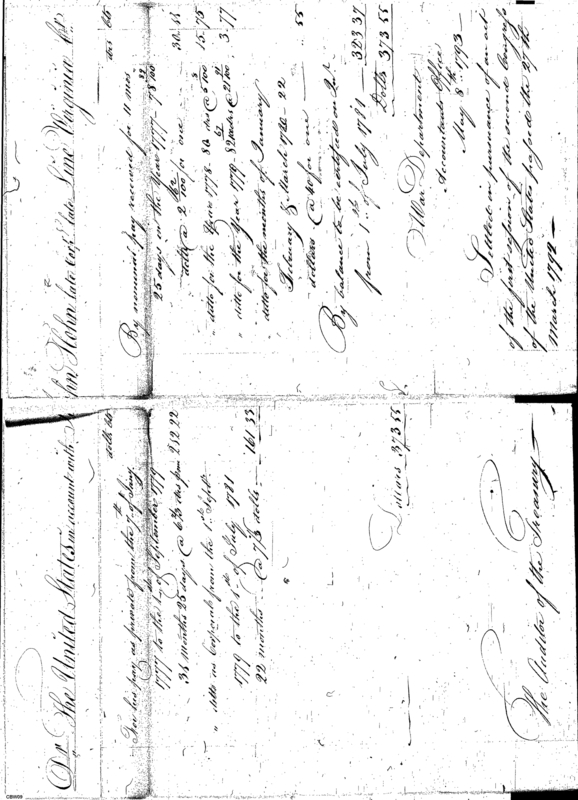 Dr The United States in account with John Hahn late Corpl. State Line Virginia Cr.
dolls cts
For his pay as private from the 7th of Jany
1777 to the 1st September 1779
34 months 25 days @ 6⅔ dlls pm 232 22
" ditto as Corporal from the 1st Septr.
1779 to the 1st of July 1781
22 months @ 7⅓ dolls 161 33
Dollars 373 55
The Auditor of the Treasury
dlls cts
By nominal pay received for 11 mos
25 days in the Year 1777 78
dolls @ 2 for one 30.18
" ditto for the Year 1778 80 dlls @ 15.75
" ditto for the Year 1779 82 dolls @ 3.77
ditto for the months of January
February & March 1780 22
dollars @ 40 for one 55
By balance to be certified on Int.
from 1st of July 1781 323 37
Dolls 373 55
War Department
Accountants Office
May 8th 1793
Settled in pursuance of an act
of the first session of the second Congress
of the United States passed the 27th
March 1792
CBW09